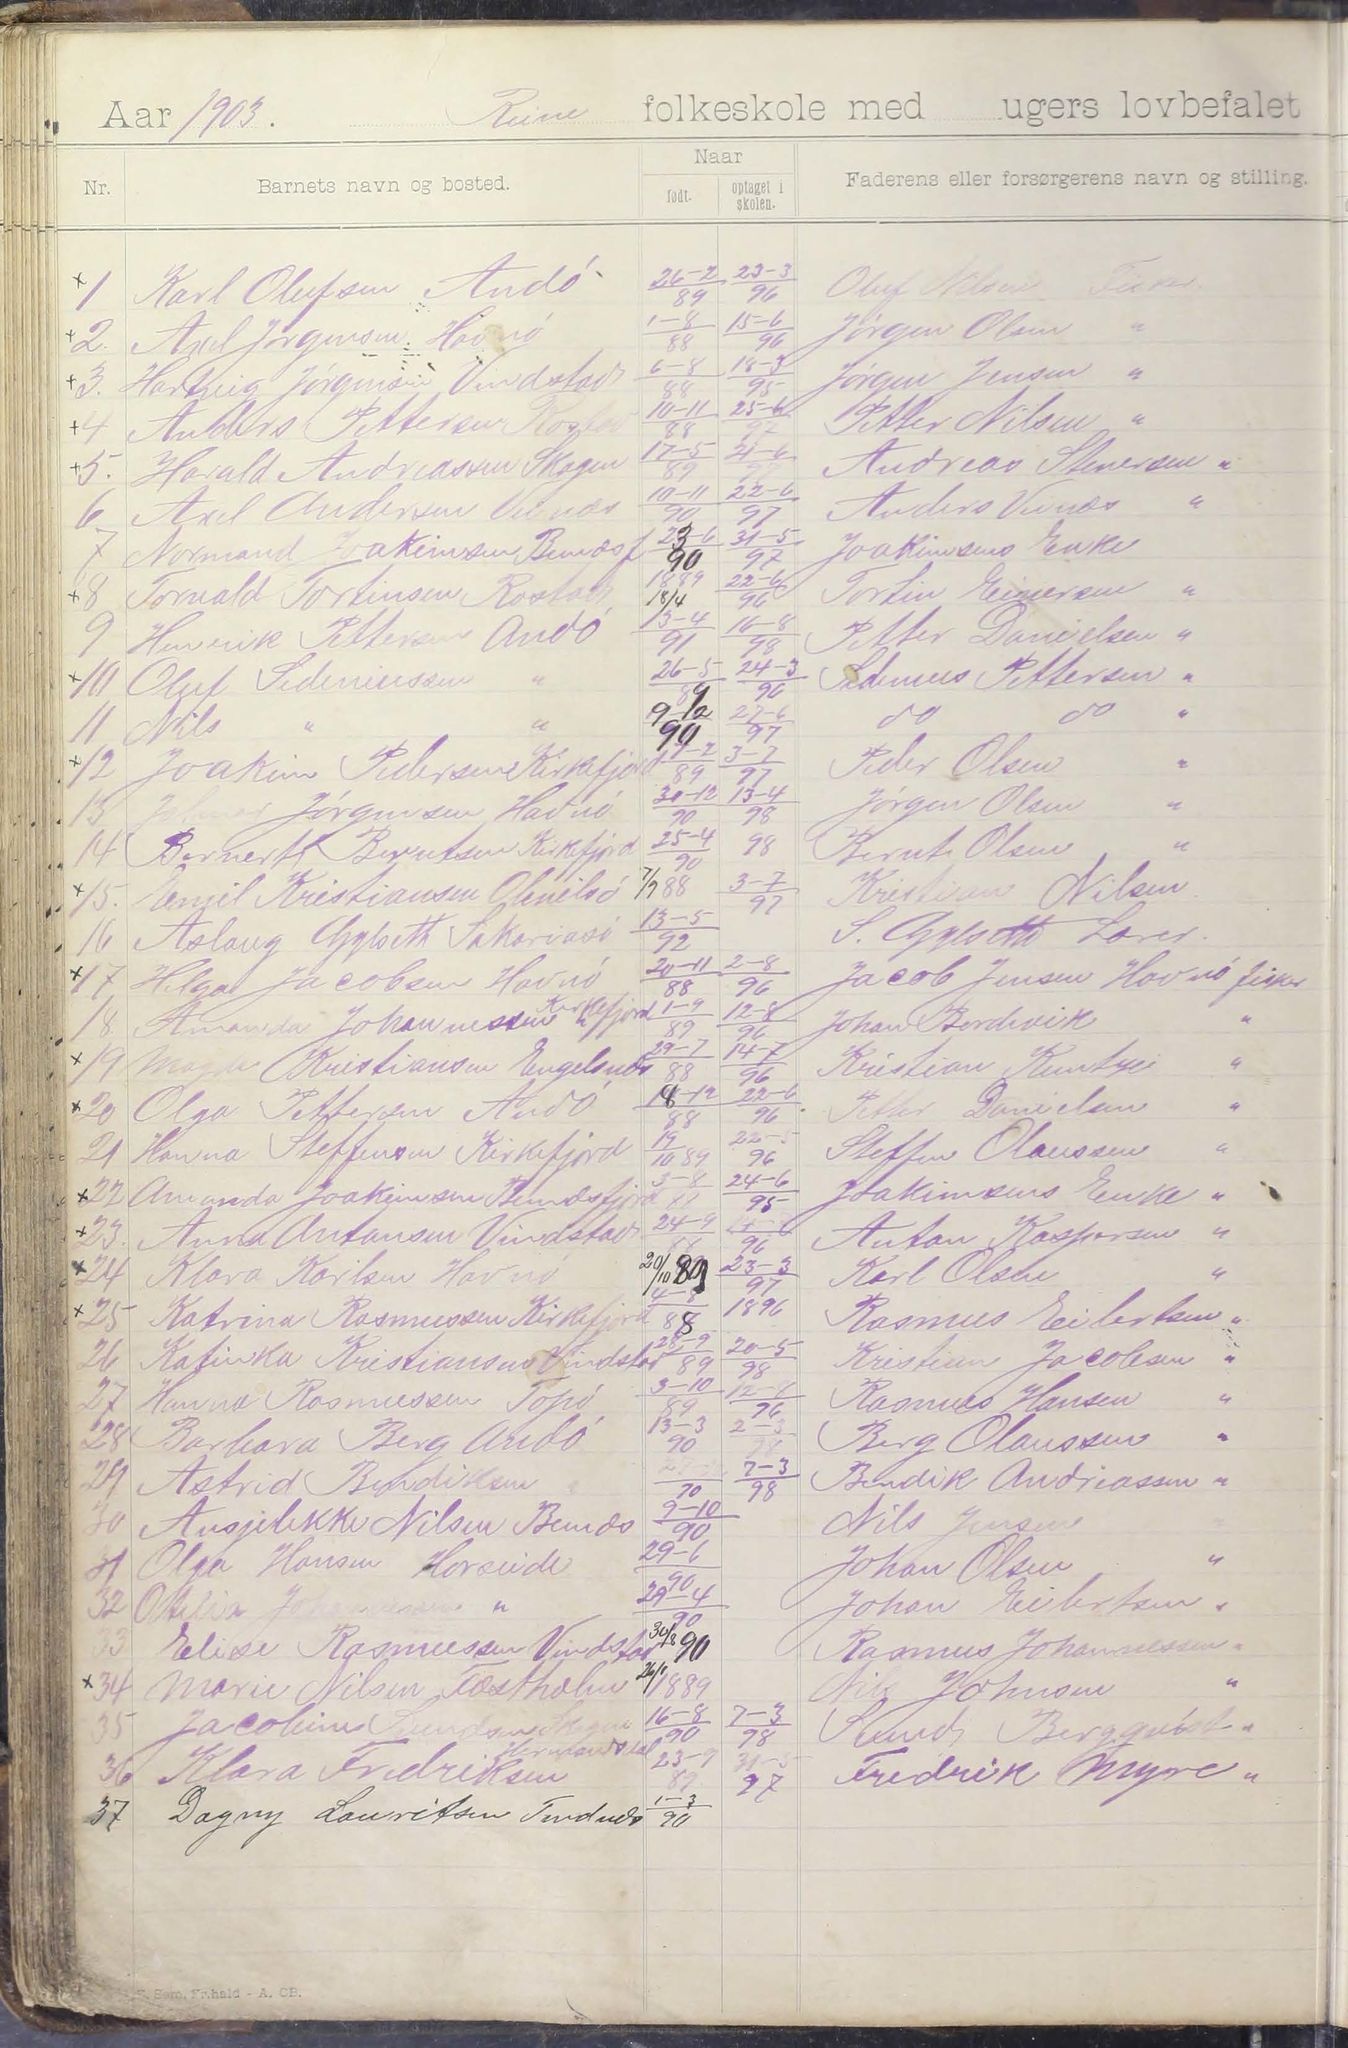 Aar 1903. Reine folkeskole med ugers lovbefalet
Nr. Barnets navn og bosted. Naar født. optaget i skolen. Faderens eller forsørgerens navn og stilling.
x 1 Karl Olufsen Andö 26-2/89 23-3/96 Oluf Nilsen Fisker
x 2. Axel Jörgensen Havnö 1-8/88 15-6/96 Jörgen Olsen "
x 3. Hartvig Jörgensen Vindstad 6-8/88 18-3/95 Jörgen Jensen "
x 4 Anders Pettersen Rostad 10-11/88 25-6/97 Petter Nilsen "
x 5. Harald Andreassen Skagen 17-5/89 21-6/97 Andreas Stenersen "
6 Axel Andersen 10-11/90 22-6/97 Anders "
7 Normand Joakimsen Bunæsf 23-6/90 31-5/97 Joakimsens Enke
x 8 Torvald Tortinsen Rostad 1889 18/4 22-6/96 Tortin Einersen "
9 Henrik Pettersen Andö 13-4/91 16-8/98 Petter Danielsen "
x 10 Oluf Sedeniussen " 26-5/89 24-3/96 Sedenius Pettersen "
11 Nils " " 9-12/90 27-6/97 do do "
x 12 Joakim Pedersen Kirkefjord 17-2/89 3-7/97 Peder Olsen "
13 Jörgensen Havnö 30-12/90 13-4/98 Jörgen Olsen "
14 Bernert Berntsen Kirkefjord 25-4/90 98 Bernt Olsen "
x 15. Emil Kristiansen Olenilsö 7/9 88 3-7/97 Kristian Nilsen
16 Aslaug Gylseth Sakariasö 13-5/92 S. Gylseth Lærer.
x 17 Helga Jacobsen Havnö 20-11/88 2-8/96 Jacob Jensen Havnö fisker
18. Amanda Johannessen Kirkefjord 1-9/89 12-8/96 Johan Berdivik "
x 19 Magda Kristiansen Engelsnæs 29-7/88 14-7/96 Kristian "
x 20 Olga Pettersen Andö 18-12/88 22-6/96 Petter Danielsen "
21 Hanna Steffensen Kirkefjord 19/10 89 22-5/96 Steffen Olaussen "
x 22 Amanda Joakimsen Bunæsfjord 3-8 24-6/95 Joakimsens Enke "
x 23. Anna Antonsen Vindstad 24-9 96 Anton Kaspersen "
x 24 Klara Karlsen Havnö 20/10 89 23-3/97 Karl Olsen "
x 25 Katrina Rasmussen Kirkefjord 4-8/88 1896 Rasmus Eilertsen "
26 Kafinka Kristiansen Vindstad 28-9/89 20-5/98 Kristian Jacobsen "
27 Hanna Rasmussen Topö 3-10/89 12-8/96 Rasmus Hansen "
28 Barbara Berg Andö 13-3/90 2-3/98 Berg Olaussen "
29 Astrid Bendiksen " 7-3/98 Bendik Andreassen "
30 Ansjelikke Nilsen Bunæs 9-10/90 Nils Jensen "
31 Olga Hansen Horseide 29-6/90 Johan Olsen "
32 Otelia Johannessen " 29-4/90 Johan Eilertsen "
33 Elise Rasmussen Vindstad 30/8 90 Rasmus Johannessen "
x 34 Marie Nilsen Fæstholm 26/1 1889 Nils Johnsen "
35 Jacobine Skagen 16-8/90 7-3/98 Bergqvist "
36 Klara Fredriksen Hermansdal 23-9/89 31-5/97 Fredrik Myre "
37 Dagny Lauritsen Tindnæs 1-3/90
S. Sem, Fr.hald - A. CB.